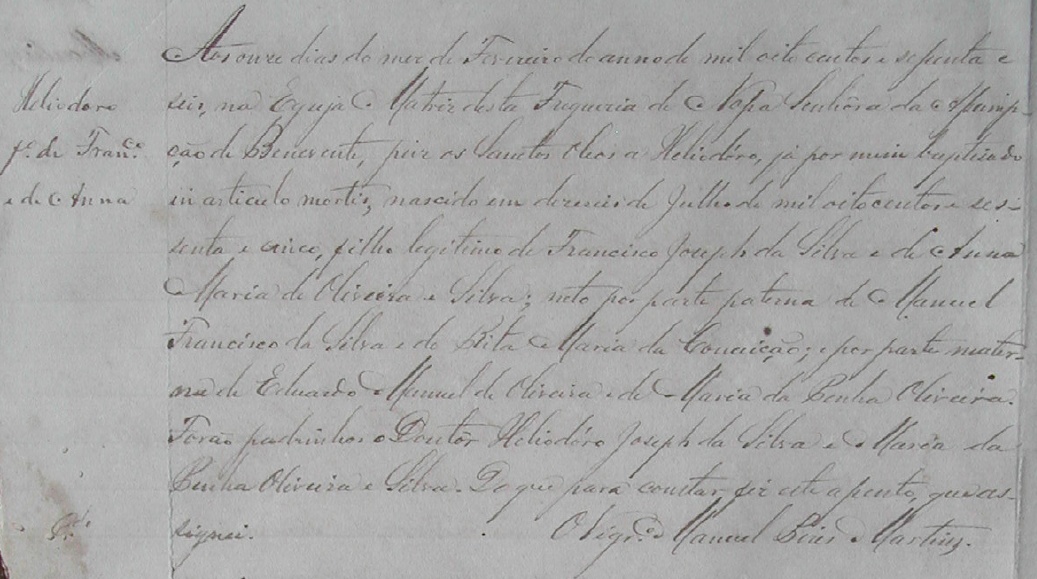 Aos onze dias do mez de Fevereiro do anno de mil oito centos e sessenta e
Heliodoro
seis, na Egreja Matriz desta Freguezia de Nossa Senhôra da Assump-
fº. de Franco.
ção de Benevente, puz os Santos Oleos a Heliodóro, já por mim baptizado
e de Anna
in articulo mortis, nascido em dezeseis de Julho de mil oitocentos e ses-
senta e cinco, filho legitimo de Francisco Joseph da Silva e de Anna
Maria de Oliveira e Silva; neto por parte paterna de Manuel
Francisco da Silva e de Rita Maria da Conceição; e por parte mater-
na de Eduardo Manuel de Oliveira e de Maria da Penha Oliveira.
Forão padrinhos o Doutôr Heliodóro Joseph da Silva e Maria da
Penha Oliveira e Silva. Do que para constar fiz este assento, que as-
signei. O Vigrº. Manuel Pires Martins.